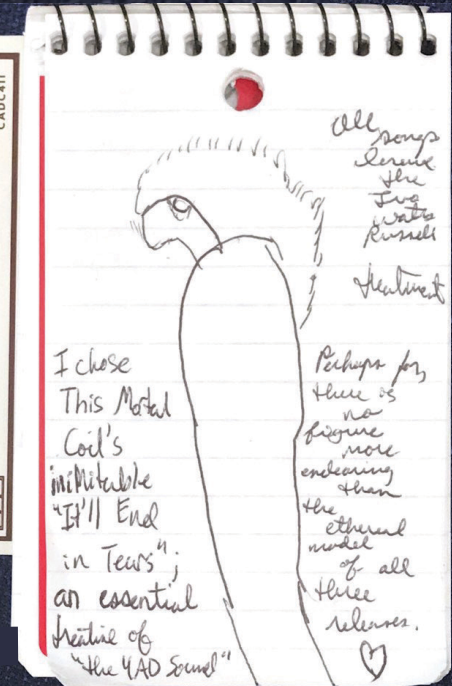 CADC411
All
songs
deserve
the
Ivo
watts
Russell
treatment
I chose
This Mortal
Coil's
inimitable
"It'll End
in Tears";
an essential
treatise of
"the 4AD Sound"
Perhaps for,
there is
no
figure
more
endearing
than
the
ethereal
model
of all
three
releases.